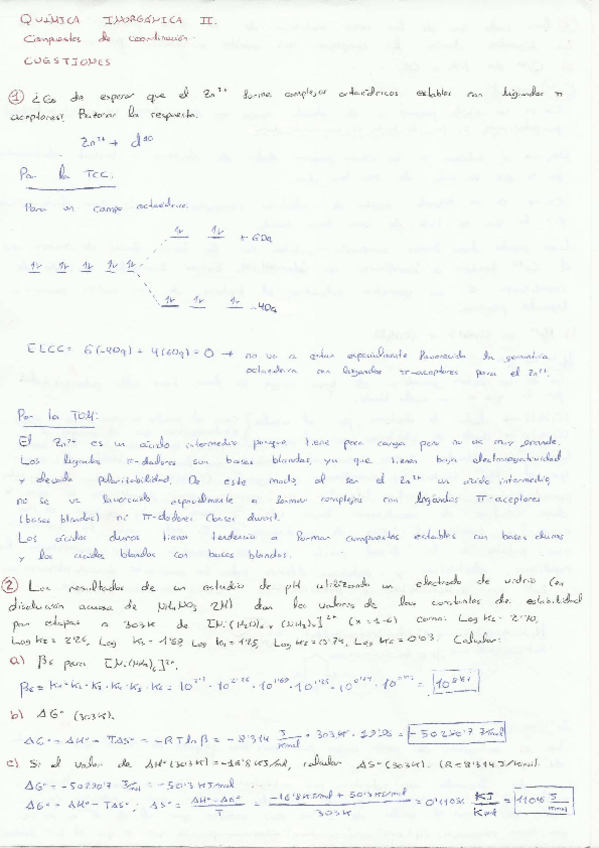 QUÍMICA INORGÁNICA II.
Compuestos de coordinación.
CUESTIONES
① ¿Es de esperar que el Zn²⁺ forme complejos octaédricos estables con ligandos π
aceptores? Razonar la respuesta.
Zn²⁺ → d¹⁰
Por la TCC.
Para un campo octaédrico:
+6Dq
-4Dq
EECC = 6(-4Dq) + 4(6Dq) = 0 → no va a estar especialmente favorecida la geometría
octaédrica con ligandos π-aceptores para el Zn²⁺.
Por la TOM:
El Zn²⁺ es un ácido intermedio porque tiene poca carga pero no es muy grande.
Los ligandos π-dadores son bases blandas, ya que tienen baja electronegatividad
y elevada polarizabilidad. De este modo, al ser el Zn²⁺ un ácido intermedio,
no se ve favorecido especialmente a formar complejos con ligandos π-aceptores
(bases blandas) ni π-dadores (bases duras).
Los ácidos duros tienen tendencia a formar compuestos estables con bases duras
y los ácidos blandos con bases blandas.
② Los resultados de un estudio de pH utilizando un electrodo de vidrio (en
disolución acuosa de NH₄NO₃ 2M) dan los valores de las constantes de estabilidad
por etapas a 303K de [Ni(H₂O)₆₋ₓ(NH₃)ₓ]²⁺ (x=1-6) como: Log K₁ = 2'70,
Log K₂ = 2'26, Log K₃ = 1'69 Log K₄ = 1'25, Log K₅ = 0'74, Log K₆ = 0'03. Calcular:
a) β₆ para [Ni(NH₃)₆]²⁺.
β₆ = K₁·K₂·K₃·K₄·K₅·K₆ = 10²'⁷ · 10²'²⁶ · 10¹'⁶⁹ · 10¹'²⁵ · 10⁰'⁷⁴ · 10⁰'⁰³ = 10⁸'⁶⁷
b) ΔG° (303K).
ΔG° = ΔH° - TΔS° = -RT lnβ = -8'314 J/Kmol · 303K · 19'96 = -50290'7 J/Kmol
c) Si el valor de ΔH° (303K) = -16'8 KJ/mol, calcular ΔS° (303K). (R=8'314 J/Kmol).
ΔG° = -50290'7 J/mol = -50'3 KJ/mol
ΔG° = ΔH° - TΔS°; ΔS° = ΔH° - ΔG° / T = -16'8 KJ/mol + 50'3 KJ/mol / 303K = 0'11056 KJ/Kmol = 110'6 J/Kmol